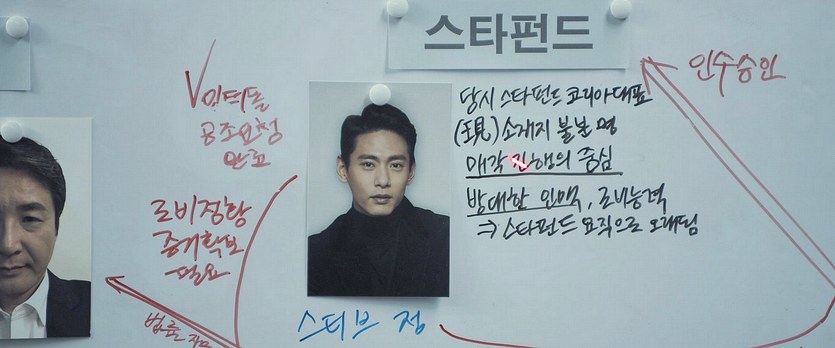 스타펀드
인수승인
V 인터폴
공조요청
완료
당시 스타펀드 코리아대표
(現) 소재지 불분명
매각 진행의 중심
방대한 인맥, 로비능력
⇒ 스타펀드 요직으로 오래됨
로비정황
증거확보
필요
스티브 정
법률 자문